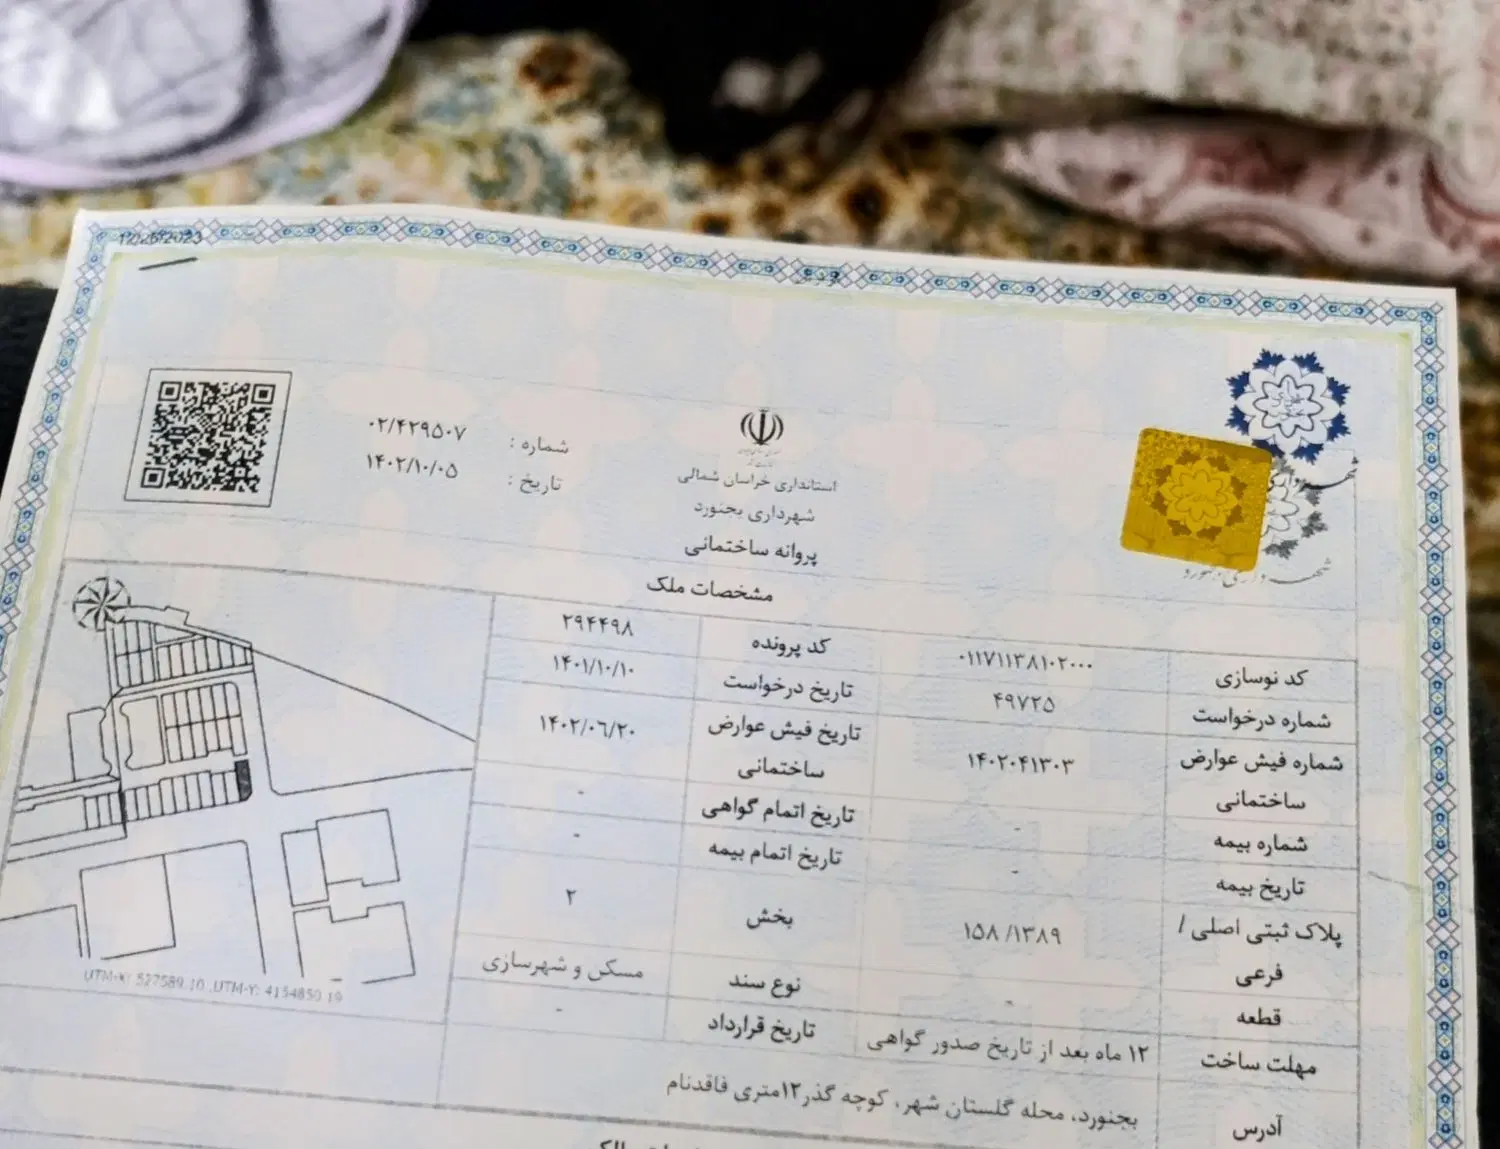 شماره : ۰۲/۴۲۹۵۰۷
تاریخ : ۱۴۰۲/۱۰/۰۵
استانداری خراسان شمالی
شهرداری بجنورد
پروانه ساختمانی
مشخصات ملک
کد نوسازی ۰۱۱۷۱۱۳۸۱۰۲۰۰۰ کد پرونده ۲۹۴۴۹۸
شماره درخواست ۴۹۷۲۵ تاریخ درخواست ۱۴۰۱/۱۰/۱۰
شماره فیش عوارض ساختمانی ۱۴۰۲۰۴۱۳۰۳ تاریخ فیش عوارض ساختمانی ۱۴۰۲/۰۶/۲۰
شماره بیمه - تاریخ اتمام گواهی -
تاریخ بیمه - تاریخ اتمام بیمه -
پلاک ثبتی اصلی / فرعی ۱۵۸ /۱۳۸۹ بخش ۲
قطعه - نوع سند مسکن و شهرسازی
مهلت ساخت ۱۲ ماه بعد از تاریخ صدور گواهی تاریخ قرارداد -
آدرس بجنورد، محله گلستان شهر، کوچه گذر۱۲متری فاقدنام
UTM-X: 527589.10 ,UTM-Y: 4154850.19